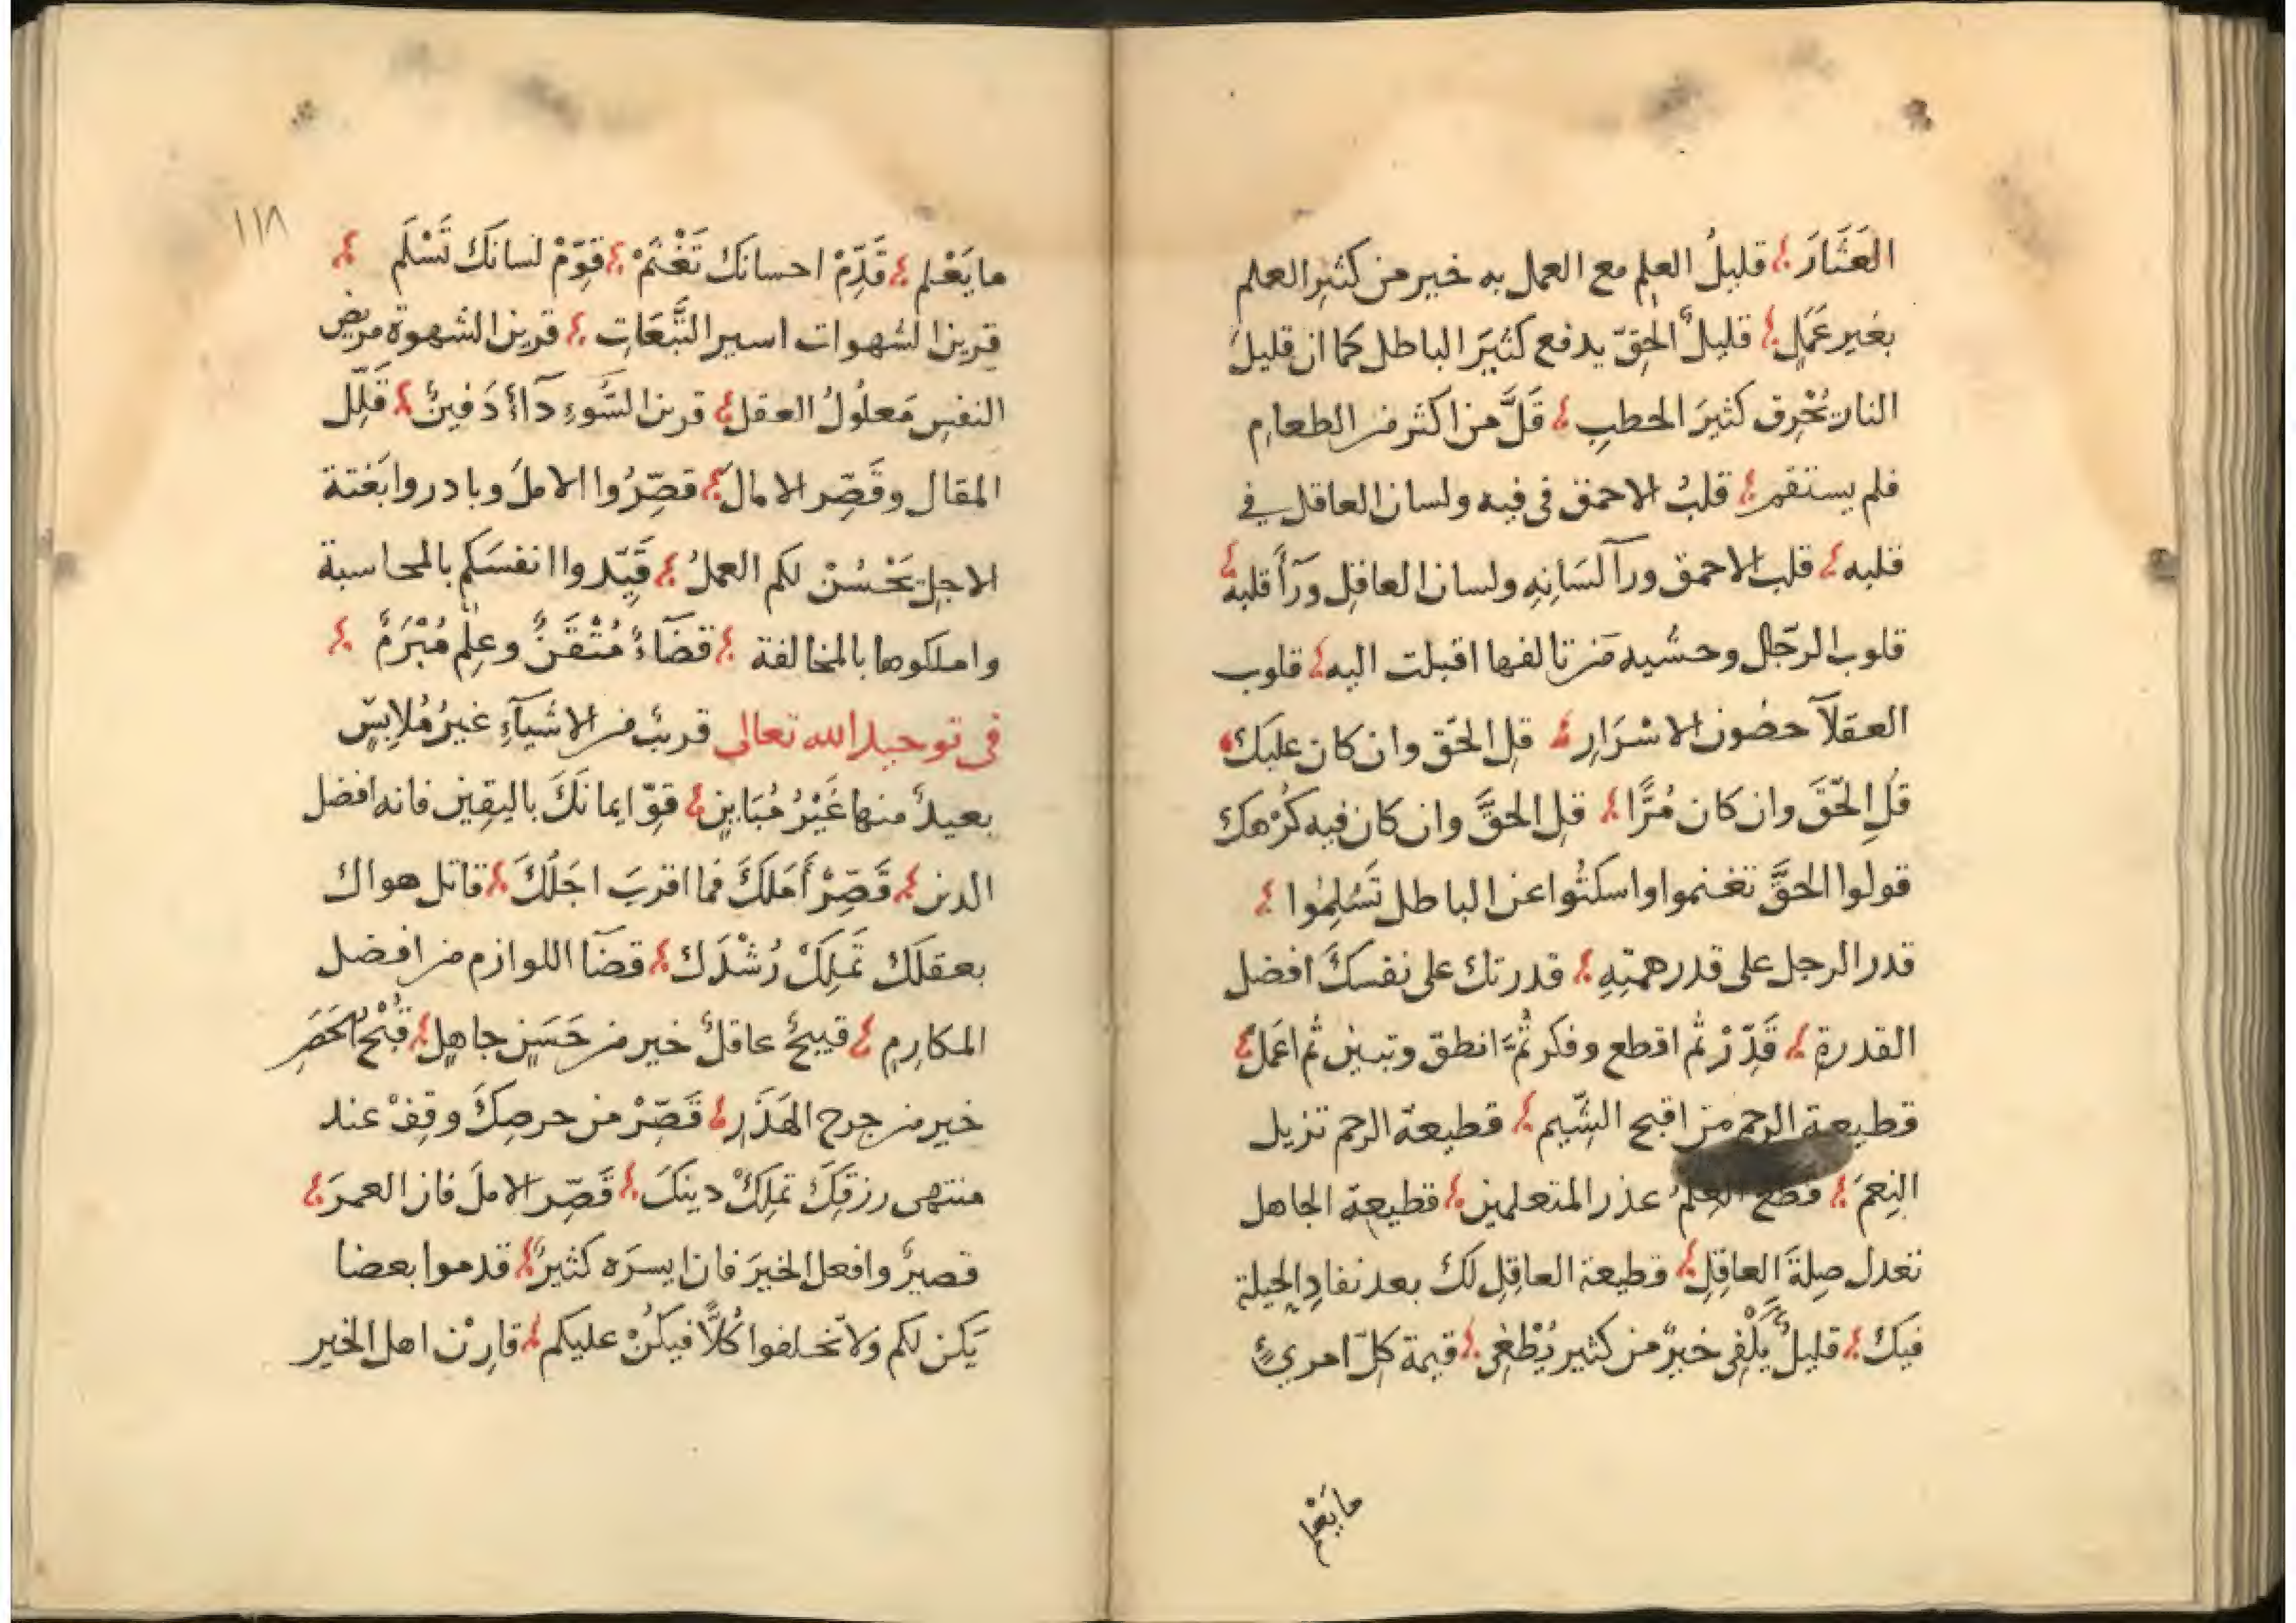 العَثَارَ ؛ قليلُ العلِم مع العمل به خير من كثيرِ العلم
بغير عَمَلٍ ؛ قليلُ الحقِّ يدفع كثيَرَ الباطل كما ان قليلَ
النار تُحْرِق كثيرَ الحطبِ ؛ قَلَّ من اكثر من الطعامِ
فلم يستقم ؛ قلبُ الاحمق فى فيه ولسان العاقل في
قلبه ؛ قلب الاحمق ورآ لسَانِهِ ولسان العاقِل ورَآَ قلبه ؛
قلوب الرّجال وحشيه من تالفها اقبلت اليه ؛ قلوب
العقلآ حصُون الاسْرَارِ ؛ قلِ الحَّق وان كان عليَكَ ؛
قلِ الحَّقَ وان كان مُرًّا ؛ قلِ الحقَّ وان كان فيه كُرْهك
قولوا الحقَّ تغنموا واسكتُوا عن الباطل تَسْلِمُوا ؛
قدر الرجل على قدر همتِهِ ؛ قدرتك على نفسكَ افضل
القدرةِ ؛ قَدِّرْ ثم اقطع وفكر ثُمَّ انطق وتبين ثم اعمَل ؛
قطيعة الرحم من اقبح الشِّيم ؛ قطيعة الرحم تزيل
النِعمَ ؛ قطع العِلمُ عذر المتعلمين ؛ قطيعة الجاهل
تعدل صِلةَ العاقِلِ ؛ قطيعة العاقِلِ لكَ بعد نفادِ الحيلة
فيكَ ؛ قليلٌ يَكْفِى خيرٌ من كثير يُطْغِى ؛ قيمة كلِّ امرىٍٔ
ما يَعْلم
١١٨
ما يَعْلم ؛ قَدِّمْ احسانكَ تَغْنَمْ ؛ قَوِّمْ لسانَكَ تَسْلَم ؛
قرين الشهوات اسير التَّبَعَاتِ ؛ قرين الشهوة مريض
النفسِ مَعلُولُ العقل ؛ قرين السَّوءِ دآءٌ دَفينٌ ؛ قَلِّل
المقال وقَصِّر الامالَ ؛ قصِّرُوا الاملَ وبادروا بَغتة
الاجلِ يَحْسُنْ لكم العملُ ؛ قَيِّدوا انفسَكم بالمحاسبة
واملكوها بالمخالفة ؛ قضَآءٌ مُتْقَنٌ وعِلمٌ مُبْرَمٌ ؛
فى توحيد الله تعالى قريبٌ من الاشيآءِ غيرُ مُلابِسٍ
بعيدٌ منها غَيْرُ مُبَاينٍ ؛ قوِّ ايمانَكَ باليقِين فانه افضل
الدين ؛ قَصِّرْ أَمَلَكَ فما اقربَ اجَلَكَ ؛ قاتل هواك
بعقلكَ تَملِكْ رُشْدَكَ ؛ قضآ اللوازم من افضل
المكارِمِ ؛ قبيحٌ عاقلٌ خير من حَسَنٍ جاهلٍ ؛ قُبْحُ الحَصَرِ
خير من جرح الهَذَرِ ؛ قَصِّرْ من حرصِكَ وقِفْ عند
منتهى رزقِكَ تملِكْ دينَكَ ؛ قَصِّر الاملَ فان العمرَ ؛
قصيرٌ وافعل الخيرَ فان ايسرَه كثيرٌ ؛ قدموا بعضا
يَكن لكم ولا تخلفوا كُلًّا فيكُنْ عليكم ؛ قارِنْ اهل الخير